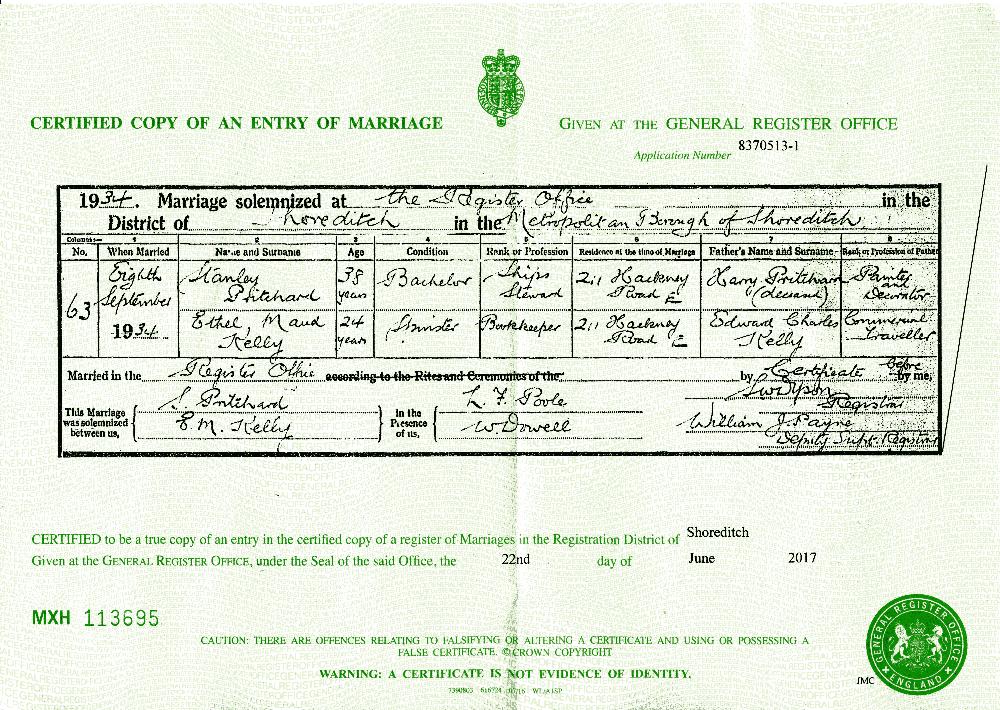 CERTIFIED COPY OF AN ENTRY OF MARRIAGE
GIVEN AT THE GENERAL REGISTER OFFICE
Application Number 8370513-1
1934. Marriage solemnized at the Register Office in the
District of Shoreditch in the Metropolitan Borough of Shoreditch
Columns:— 1 2 3 4 5 6 7 8
No. When Married Name and Surname Age Condition Rank or Profession Residence at the time of Marriage Father's Name and Surname Rank or Profession of Father
63 Eighth September 1934
Stanley Pritchard 38 years Bachelor Ships Steward 211 Hackney Road E Harry Pritchard (deceased) Painter and Decorator
Ethel Maud Kelly 24 years Spinster Bookkeeper 211 Hackney Road E Edward Charles Kelly Commercial Traveller
Married in the Register Office according to the Rites and Ceremonies of the by Certificate before by me,
This Marriage was solemnized between us,
S. Pritchard
E. M. Kelly
In the Presence of us,
L. F. Poole
W Dowell
Registrar
William J. Payne
Deputy Supt. Registrar
CERTIFIED to be a true copy of an entry in the certified copy of a register of Marriages in the Registration District of Shoreditch
Given at the GENERAL REGISTER OFFICE, under the Seal of the said Office, the 22nd day of June 2017
MXH 113695
CAUTION: THERE ARE OFFENCES RELATING TO FALSIFYING OR ALTERING A CERTIFICATE AND USING OR POSSESSING A
FALSE CERTIFICATE. © CROWN COPYRIGHT
WARNING: A CERTIFICATE IS NOT EVIDENCE OF IDENTITY.
GENERAL REGISTER OFFICE
ENGLAND
JMC